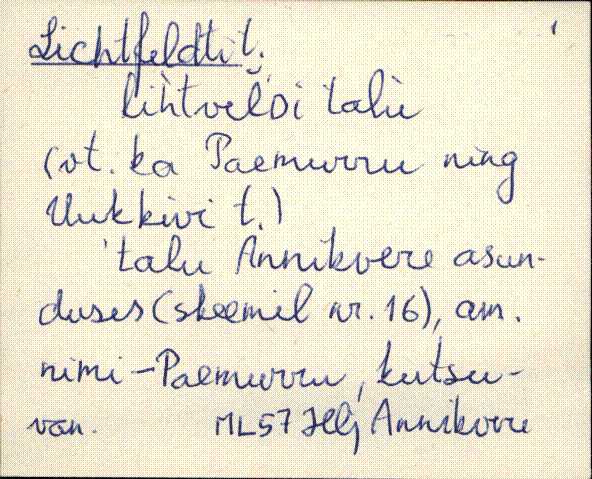 Lichtfeldti t.
lihtveldi talu
(vt. ka Paemurru ning
Uukkivi t.)
talu Annikvere asun-
duses (skeemil nr. 16), am.
nimi - Paemurru, kutsu-
van. ML57 Hlj Annikvere